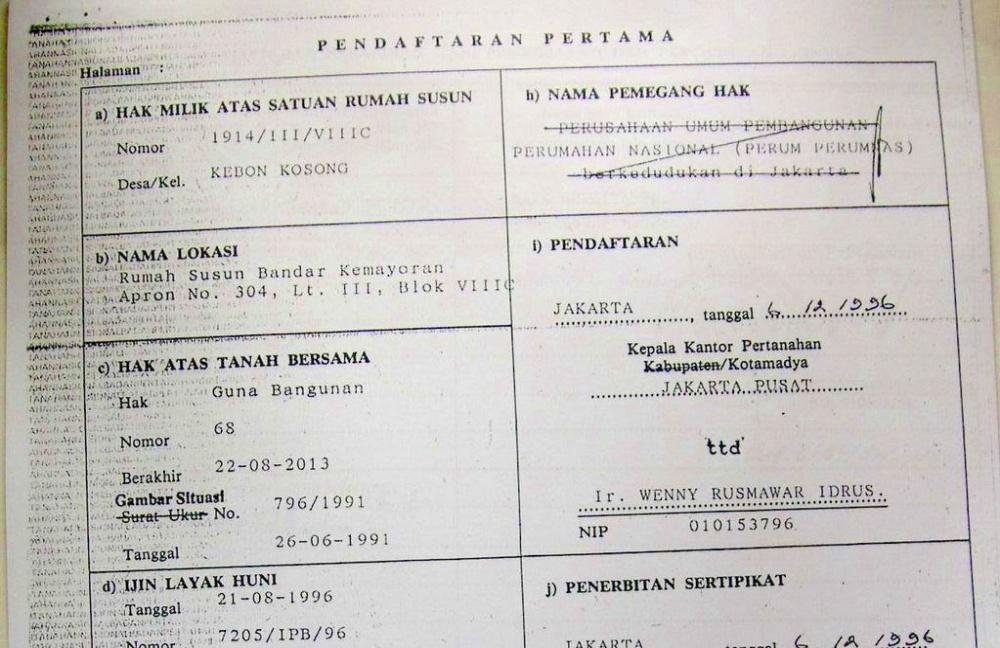 PENDAFTARAN PERTAMA
Halaman :
a) HAK MILIK ATAS SATUAN RUMAH SUSUN
Nomor 1914/III/VIIIC
Desa/Kel. KEBON KOSONG
b) NAMA LOKASI
Rumah Susun Bandar Kemayoran
Apron No. 304, Lt. III, Blok VIIIC
c) HAK ATAS TANAH BERSAMA
Hak Guna Bangunan
Nomor 68
Berakhir 22-08-2013
Gambar Situasi
Surat Ukur No. 796/1991
Tanggal 26-06-1991
d) IJIN LAYAK HUNI
Tanggal 21-08-1996
Nomor 7205/IPB/96
h) NAMA PEMEGANG HAK
PERUSAHAAN UMUM PEMBANGUNAN
PERUMAHAN NASIONAL (PERUM PERUMNAS)
berkedudukan di Jakarta
i) PENDAFTARAN
JAKARTA, tanggal 6 12 1996
Kepala Kantor Pertanahan
Kabupaten/Kotamadya
JAKARTA PUSAT
ttd
Ir. WENNY RUSMAWAR IDRUS.
NIP 010153796
j) PENERBITAN SERTIPIKAT
JAKARTA tanggal 6 12 1996